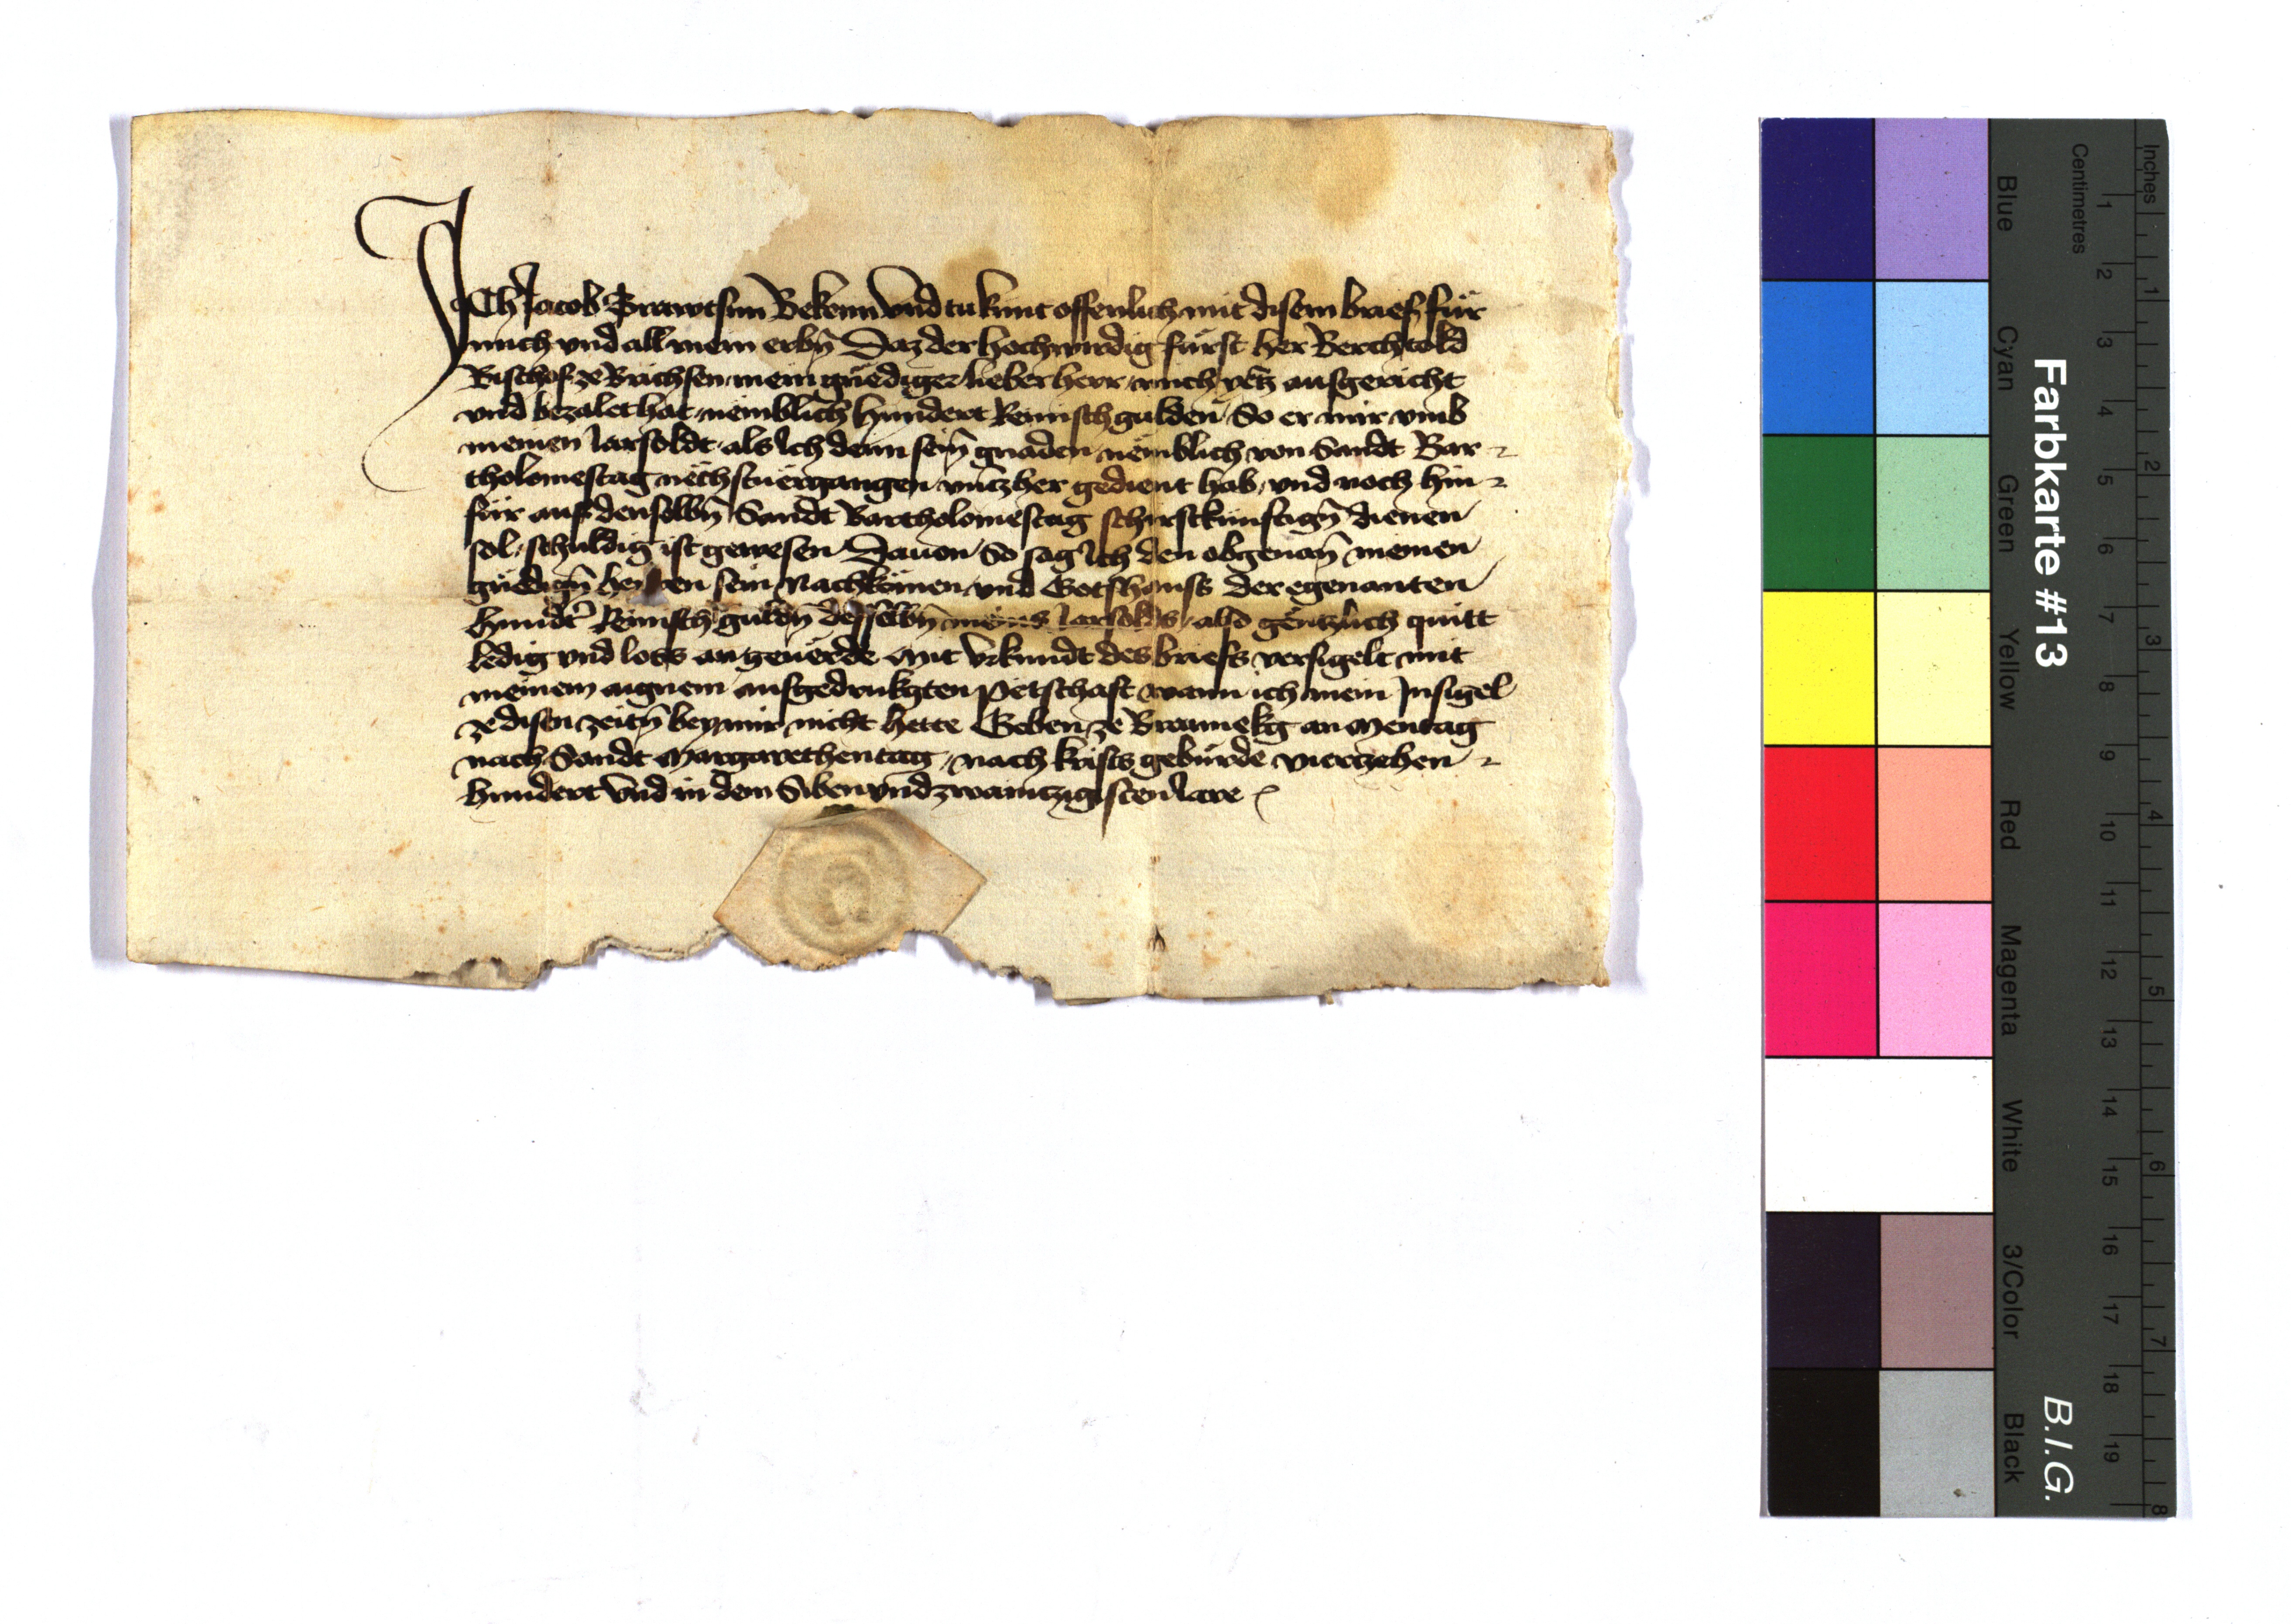 ICh Jacob Trawtsun Bekenn vnd tu kunt offenlich mit disem brief für
mich vnd all mein erbn̄ Daz der hochwirdig fürst her Berchtold
Bischof ze Brichsen mein gnediger lieber herr mich yetz ausgericht
vnd bezalet hat nemblich hundert Reinisch gulden So er mir vmb
meinen Jarsoldt als Ich denn sein̄ gnaden nemblich von Sandt Bar
tholomestag nechstuergangen vntzher gedient hab vnd noch hin
für auf denselbn̄ Sandt Bartholomestag schirstkunftign̄ dienen
sol schuldig ist gewesen Dauon So sag Ich den obgenan̄ meinen
gnedign̄ sein Nachkomen vnd Gotshauss der egenanten
hundt̄ Reinisch guldn̄ desselbn̄ meins Jarsolds also gentzlich quitt
ledig vnd loss an geuerde Mit vrkundt des briefs versigelt mit
meinem aignem aufgedrukgten petschaft wann ich mein Insigel
ze disen zeitn̄ bey mir nicht hette Geben ze Brawnekg an Mentag
nach Sandt Margarethentag nach krists geburde vierzehen
hundert vnd in dem Siben vnd zwaintzigisten Jare
Farbkarte #13
B.I.G.
Centimetres
Inches
Blue
Cyan
Green
Yellow
Red
Magenta
White
3/Color
Black
1 2 3 4 5 6 7 8 9 10 11 12 13 14 15 16 17 18 19
1 2 3 4 5 6 7 8